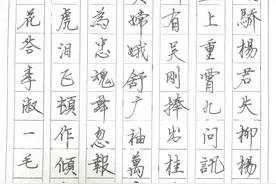 驕楊君失柳楊
上重霄九問訊
有吴刚捧出桂
嫦娥舒广袖萬
為忠魂舞忽報
虎泪飞頓作傾
花答李淑一毛